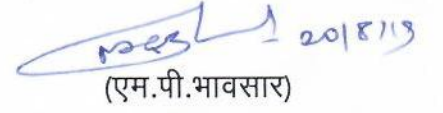 20/8/19
(एम.पी.भावसार)